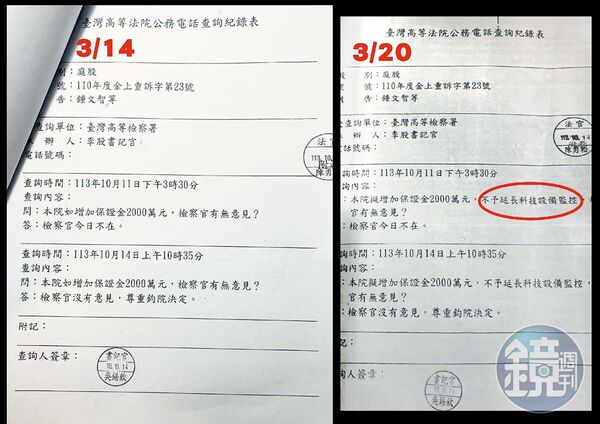 臺灣高等法院公務電話查詢紀錄表
3/14
別：庭股
號：110年度金上重訴字第23號
告：鍾文智等
查詢單位：臺灣高等檢察署
辦人：季股書記官
電話號碼：
法官
113.10.
查詢時間：113年10月11日下午3時30分
查詢內容：
問：本院如增加保證金2000萬元，檢察官有無意見？
答：檢察官今日不在。
查詢時間：113年10月14日上午10時35分
查詢內容：
問：本院如增加保證金2000萬元，檢察官有無意見？
答：檢察官沒有意見，尊重鈞院決定。
附記：
查詢人簽章：
書記官
10.14
吳錫欽
臺灣高等法院公務電話查詢紀錄表
3/20
別：庭股
號：110年度金上重訴字第23號
告：鍾文智等
查詢單位：臺灣高等檢察署
辦人：季股書記官
電話號碼：
法官
113.10.14
查詢時間：113年10月11日下午3時30分
詢內容：
：本院擬增加保證金2000萬元，不予延長科技設備監控，
官有無意見？
：檢察官今日不在。
詢時間：113年10月14日上午10時35分
詢內容：
：本院擬增加保證金2000萬元，不予延長科技設備監控，
官有無意見？
：檢察官沒有意見，尊重鈞院決定。
記：
詢人簽章：
書記官
10.14
吳錫欽
鏡週刊